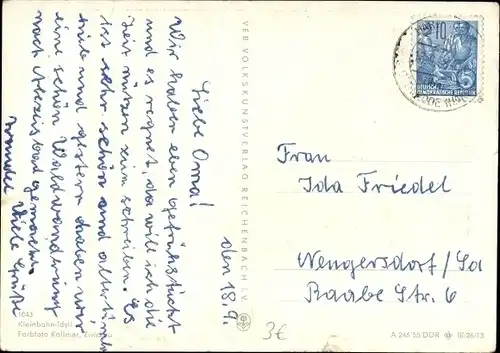 den 18.9.
Liebe Oma!
Wir haben eben gefrühstückt
und es regnet, da will ich die
Zeit nützen zum schreiben. Es
ist sehr schön und
und gestern haben wir
eine schön Waldwanderung
nach Alexisbad gemacht.
Viele Grüße
VEB VOLKSKUNSTVERLAG REICHENBACH I. V.
1043
Kleinbahn-Idyll
Farbfoto Kallmer, Zwickau
10
DEUTSCHE
DEMOKRATISCHE REPUBLIK
Frau
Ida Friedel
Wengersdorf/Sa
Raabe Str. 6
3€
A 246 55 DDR
III/26/13